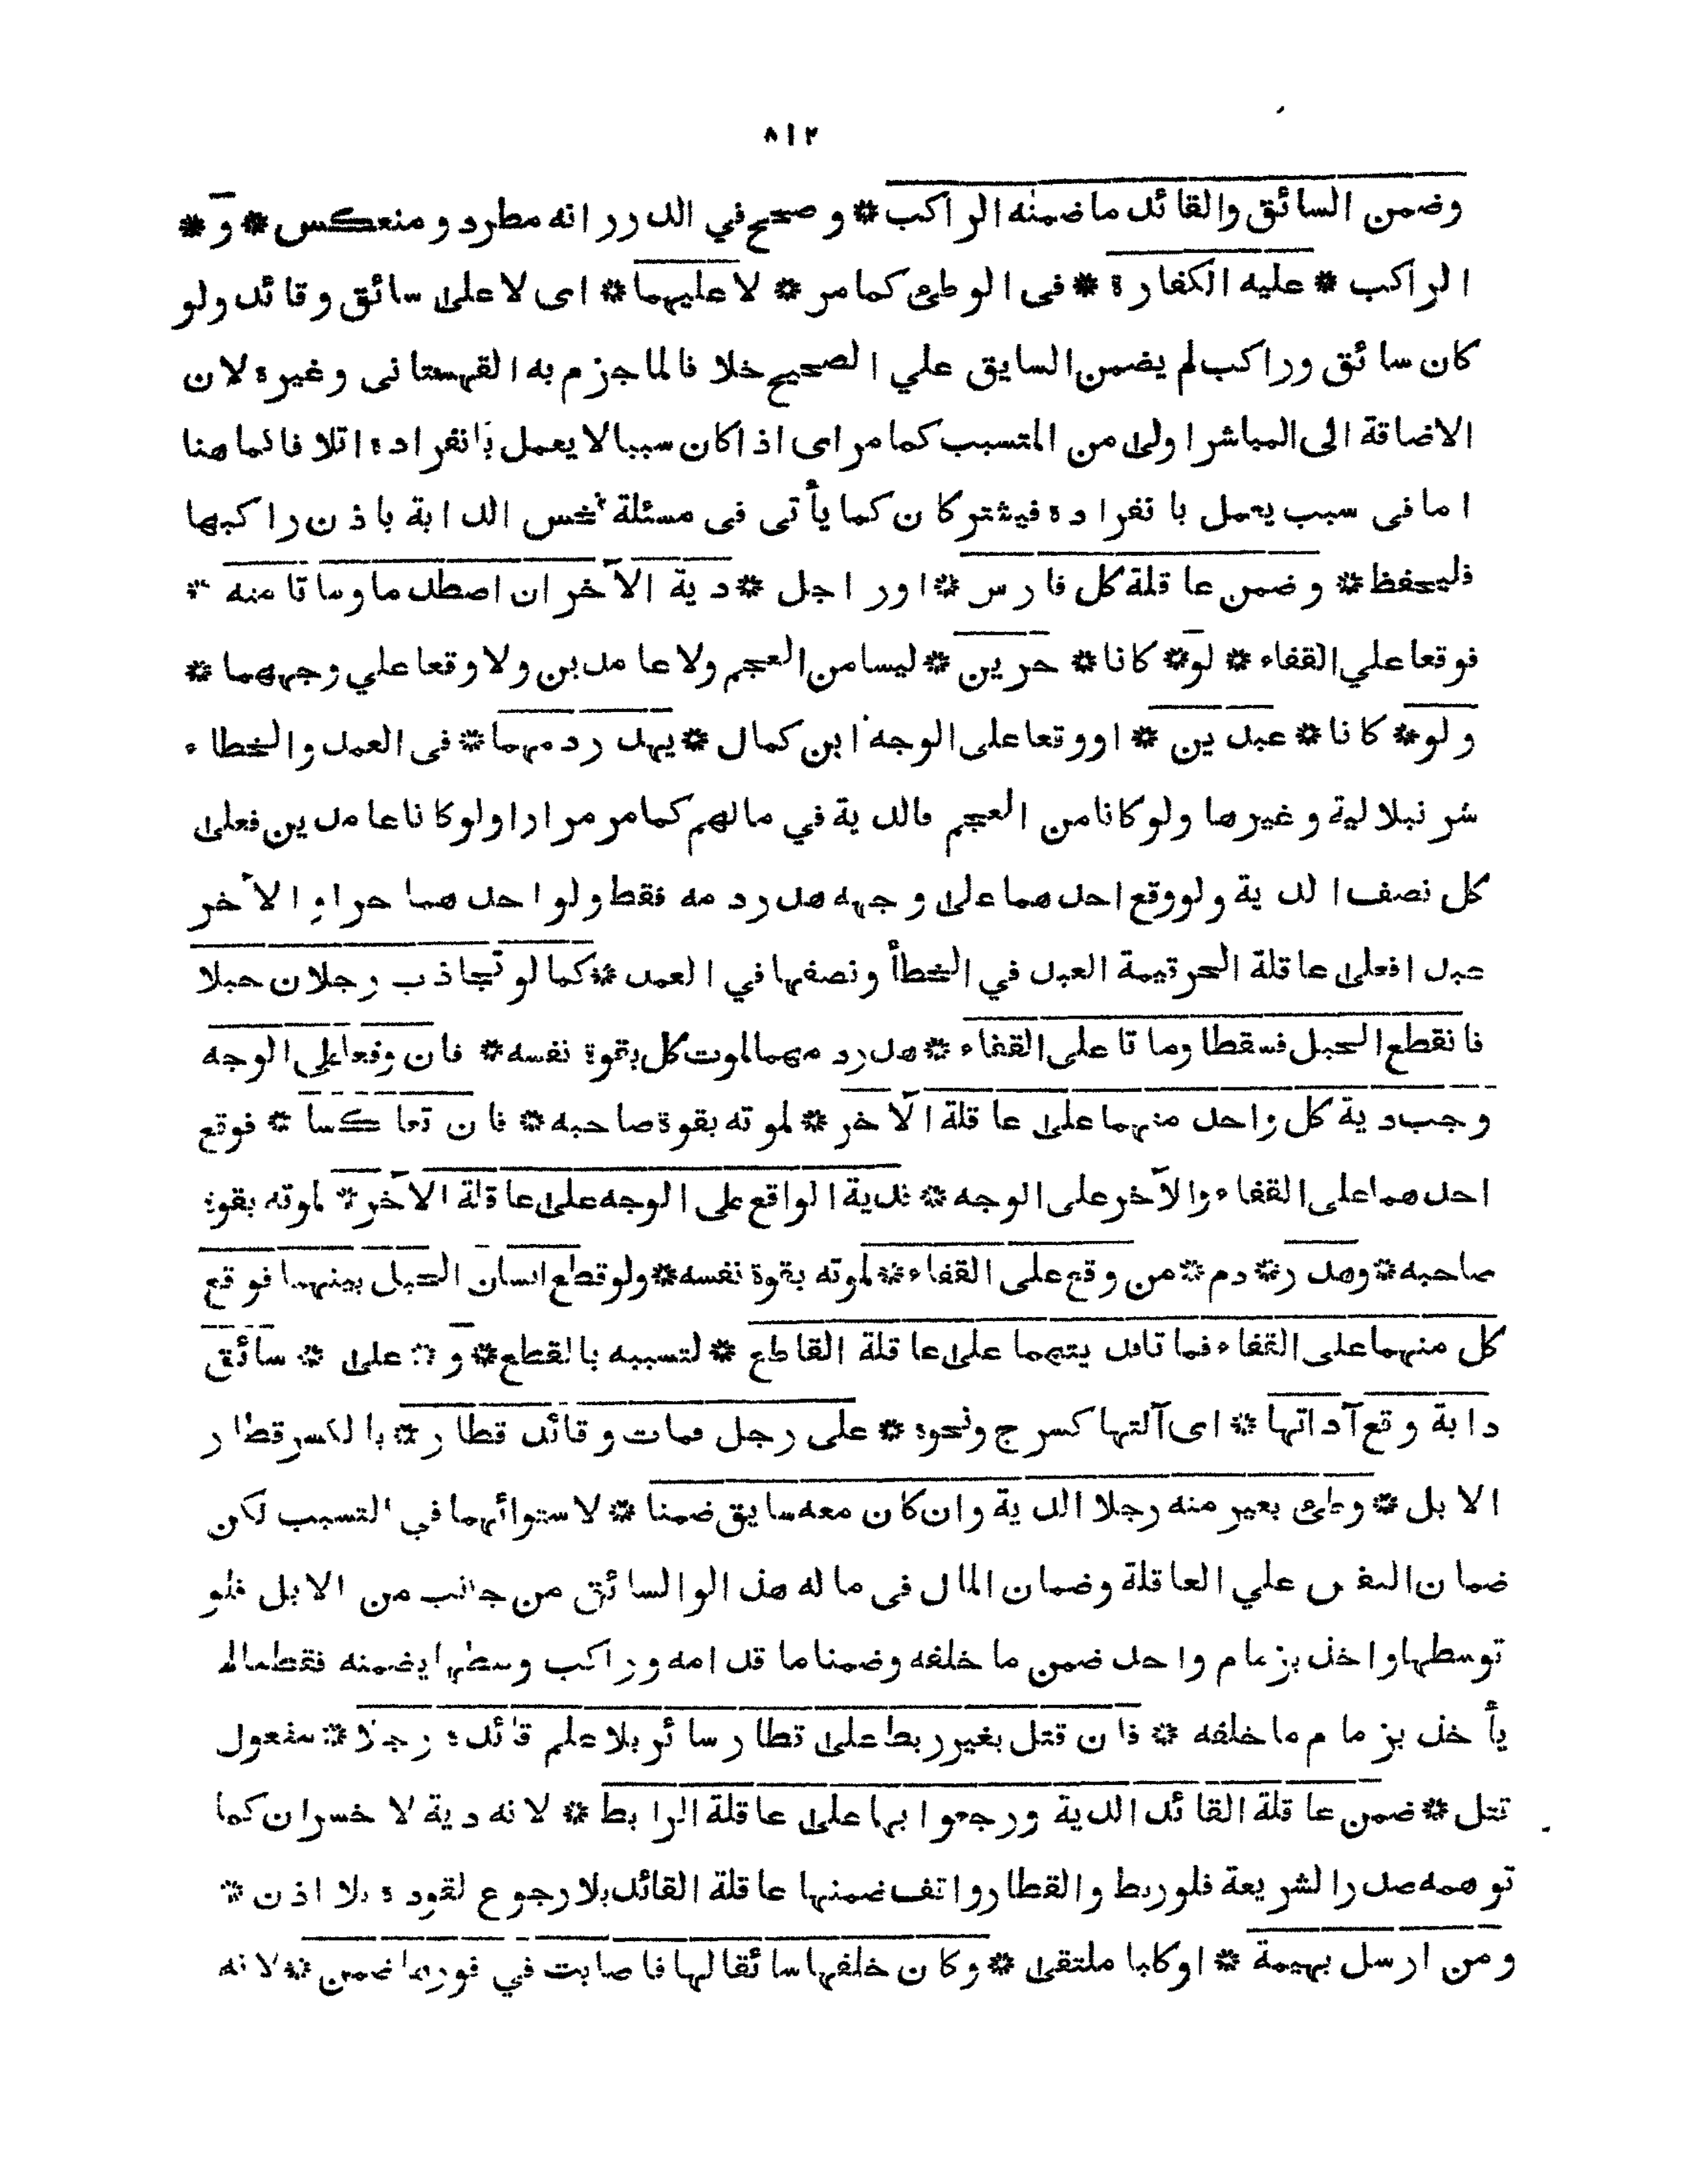 ٨١٢
وضمن السائق والقائد ما ضمنه الراكب * و صحح في الدرر انه مطرد و منعكس * و *
الراكب * عليه الكفارة * فى الوطئ كما مر * لا عليهما * اى لا على سائق و قائد ولو
كان سائق وراكب لم يضمن السايق علي الصحيح خلافا لما جزم به القهستانى وغيره لان
الاضافة الى المباشر اولى من المتسبب كما مر اى اذا كان سببا لا يعمل بانفراده اتلافا كما هنا
اما فى سبب يعمل بانفراده فيشتركان كما يأتى فى مسئلة نخس الدابة باذن راكبها
فليحفظ * وضمن عاقلة كل فارس * او راجل * دية الآخر ان اصطدما وماتا منه *
فوقعا علي القفاء * لو * كانا * حرين * ليسا من العجم ولا عامدين ولا وقعا علي وجههما *
ولو * كانا * عبدين * او وقعا على الوجه ابن كمال * يهدر دمهما * فى العمد والخطاء
شرنبلالية وغيرها ولو كانا من العجم فالدية في مالهم كما مر مرارا ولو كانا عامدين فعلى
كل نصف الدية ولو وقع احدهما على وجهه هدر دمه فقط ولو احدهما حرا و الآخر
عبدا فعلى عاقلة الحر قيمة العبد في الخطأ ونصفها في العمد * كما لو تجاذب رجلان حبلا
فانقطع الحبل فسقطا وماتا على القفاء * هدر دمهما لموت كل بقوة نفسه * فان وقعا على الوجه
وجب دية كل واحد منهما على عاقلة الآخر * لموته بقوة صاحبه * فان تعاكسا * فوقع
احدهما على القفاء والآخر على الوجه * فدية الواقع على الوجه على عاقلة الآخر * لموته بقوة
صاحبه * وهدر * دم * من وقع على القفاء * لموته بقوة نفسه * ولو قطع انسان الحبل بينهما فوقع
كل منهما على القفاء فماتا فديتهما على عاقلة القاطع * لتسببه بالقطع * و * على * سائق
دابة وقع آداتها * اى آلتها كسرج ونحوه * على رجل فمات وقائد قطار * بالكسر قطار
الابل * وطئ بعير منه رجلا الدية وان كان معه سايق ضمنا * لاستوائهما في التسبب لكن
ضمان النفس علي العاقلة وضمان المال فى ماله هذا لو السائق من جانب من الابل فلو
توسطها واخذ بزمام واحد ضمن ما خلفه وضمنا ما قدامه وراكب وسطها يضمنه فقط مالم
يأخذ بزمام ما خلفه * فان قتل بغير ربط على قطار سائر بلا علم قائده رجلا * مفعول
قتل * ضمن عاقلة القائد الدية ورجعوا بها على عاقلة الرابط * لانه دية لا خسران كما
توهمه صدر الشريعة فلو ربط والقطار واقف ضمنها عاقلة القائد بلا رجوع لقوده بلا اذن *
ومن ارسل بهيمة * او كلبا ملتقى * وكان خلفها سائقا لها فاصابت في فورها ضمن * لانه